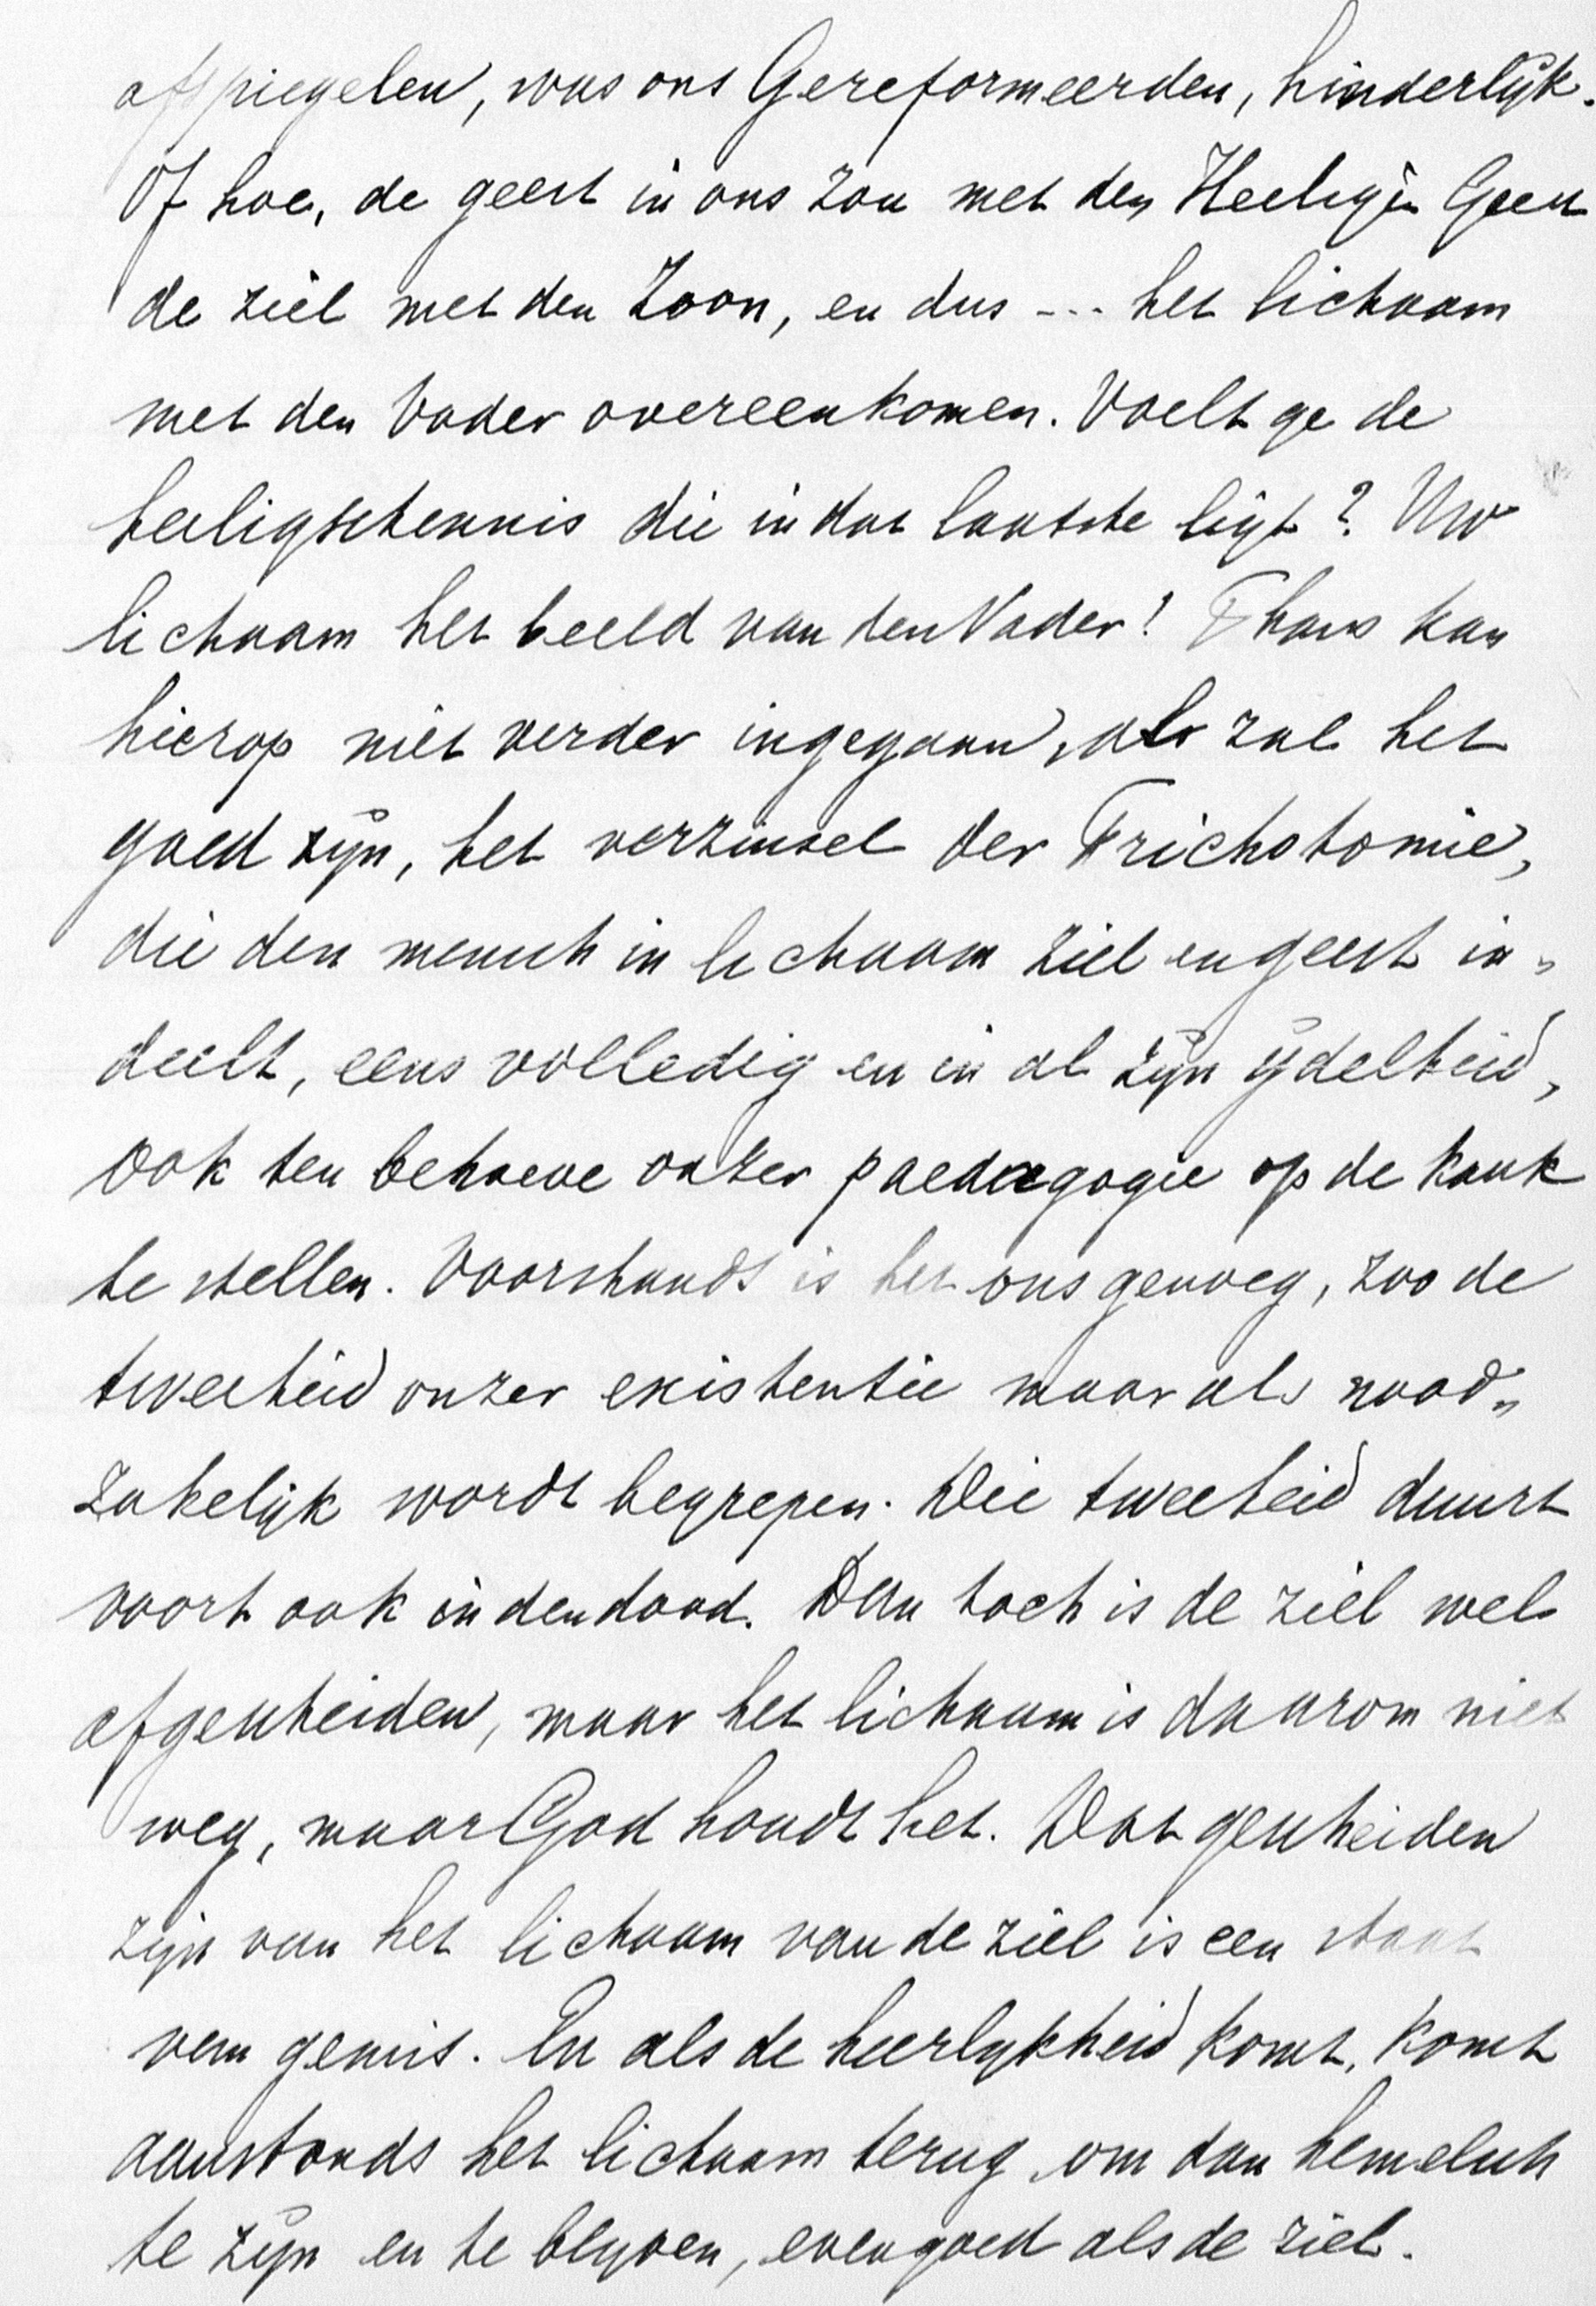 afspiegelen, was ons Gereformeerden, hinderlijk.
Of hoe, de geest in ons zou met den Heeligen Geest
de ziel met den Zoon, en dus --- het lichaam
met den Vader overeenkomen. Voelt ge de
heiligschennis die in dat laatste ligt? Uw
lichaam het beeld van den Vader! Thans kan
hierop niet verder ingegaan, als zal het
goed zijn, het verzinsel der Trichotomie,
die den mensch in lichaam ziel en geest in„
deelt, eens volledig en in al zijn ijdelheid,
ook ten behoeve onzer paedagogie op de kaak
te stellen. Voorshands is het ons genoeg, zoo de
tweeheid onzer existentie maar als nood„
zakelijk wordt begrepen. Die tweeheid duurt
voort ook in den dood. Dan toch is de ziel wel
afgescheiden, maar het lichaam is daarom niet
weg, maar God houdt het. Dat gescheiden
zijn van het lichaam van de ziel is een staat
van gemis. En als de heerlijkheid komt, komt
aanstonds het lichaam terug om dan hemelsch
te zijn en te blijven, evengoed als de ziel.